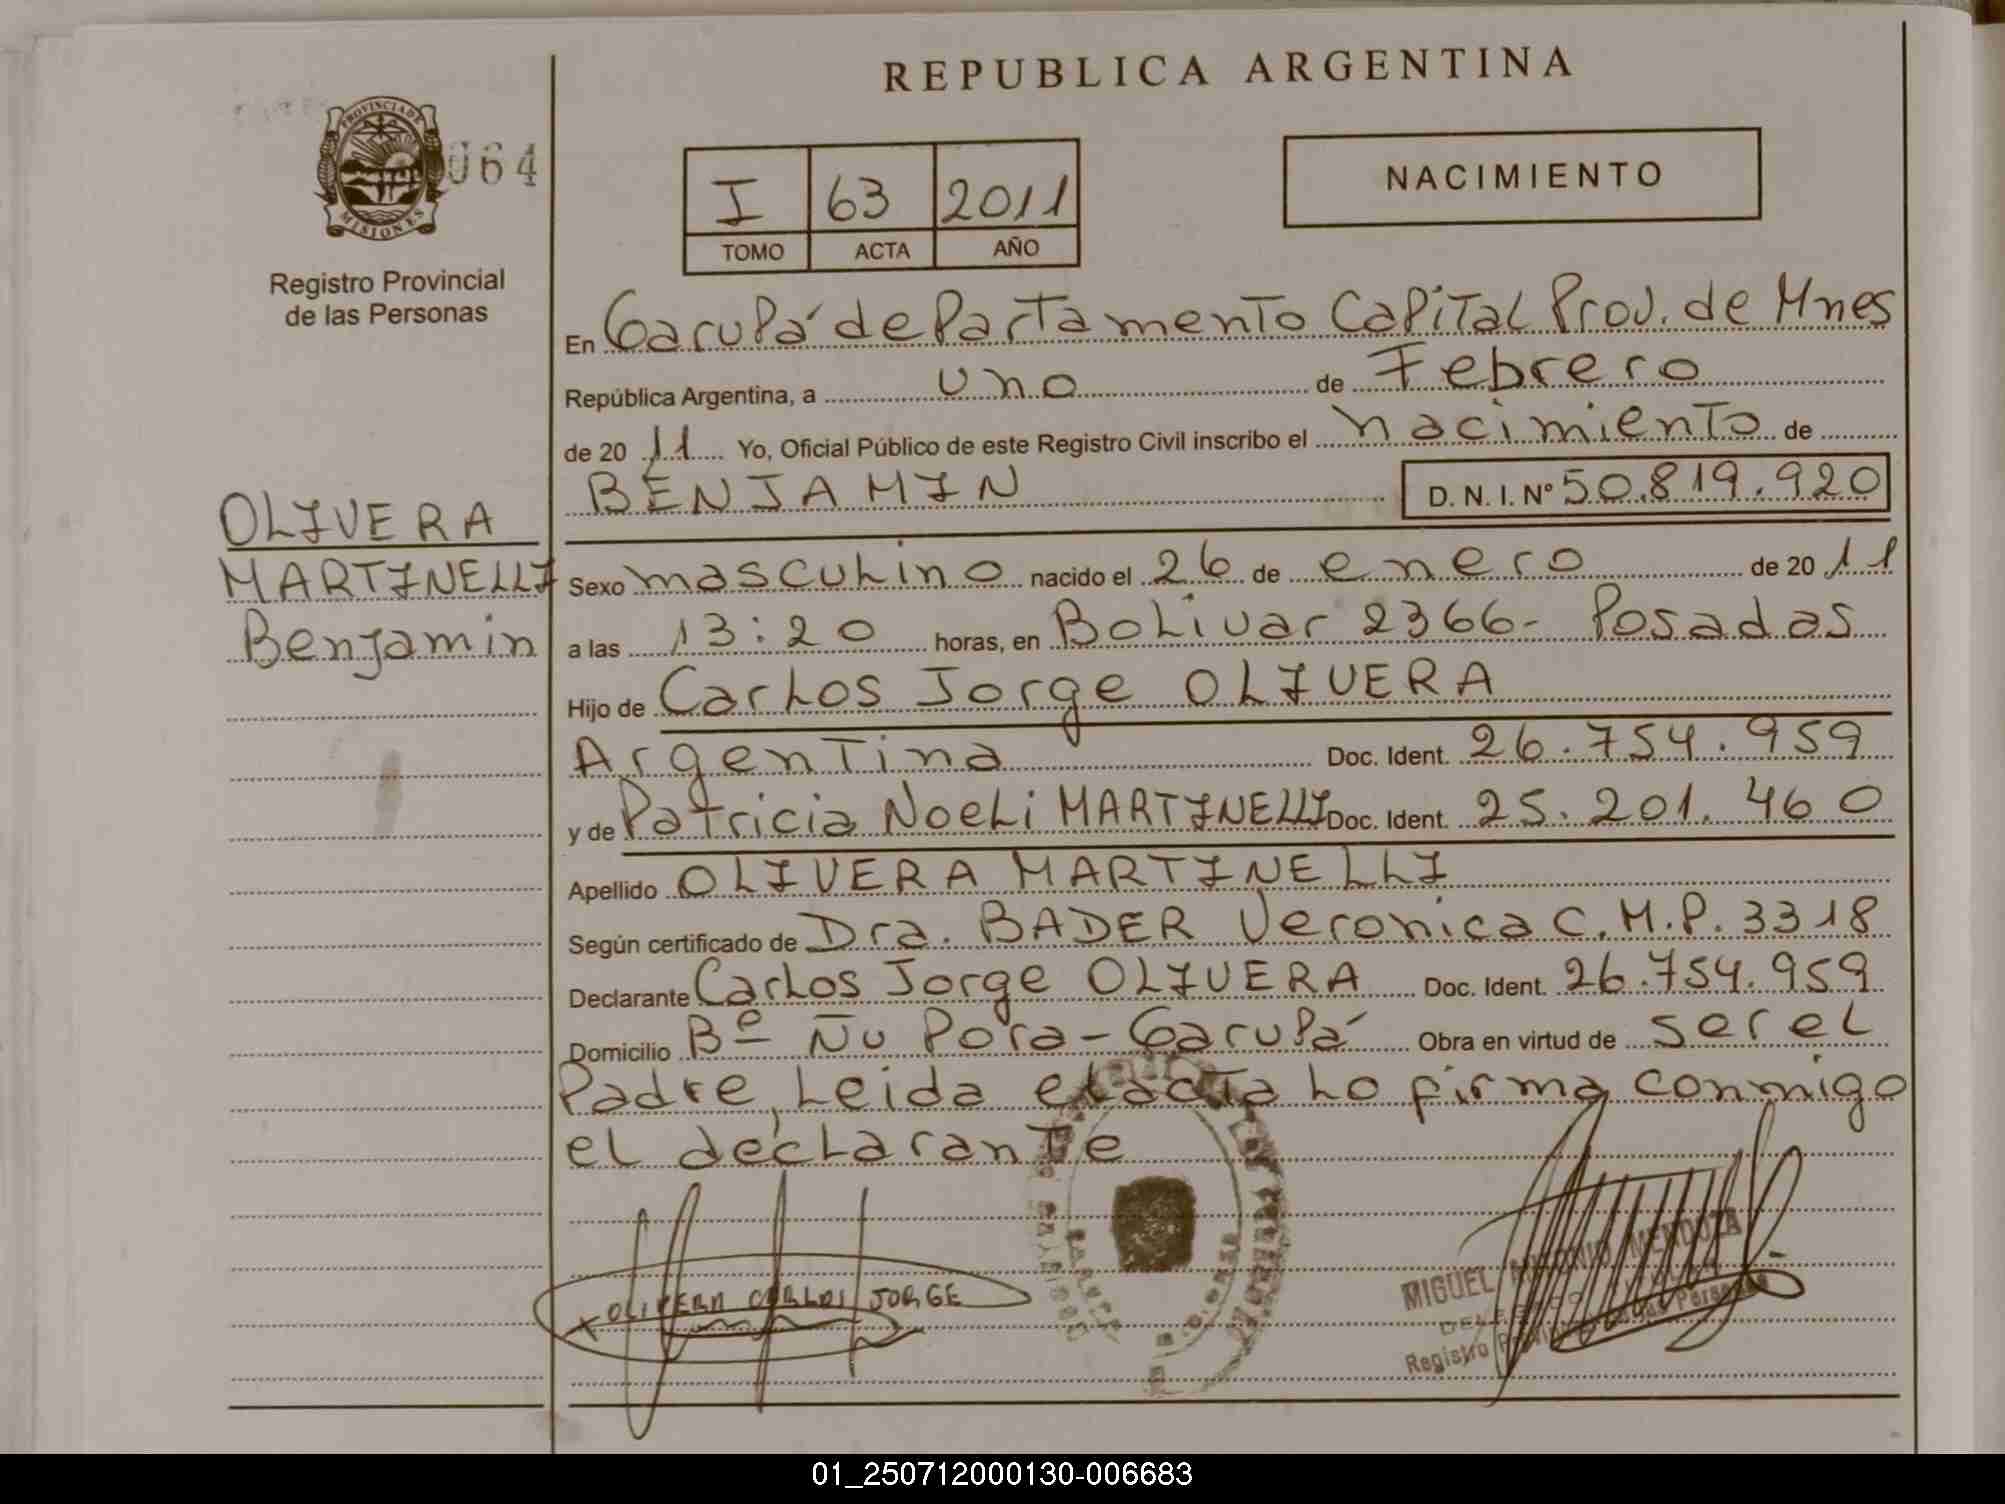 REPUBLICA ARGENTINA
PROVINCIA DE
MISIONES
064
Registro Provincial
de las Personas
I 63 2011
TOMO ACTA AÑO
NACIMIENTO
En Garupá departamento Capital Prov. de Mnes
República Argentina, a uno de Febrero
de 20 11 Yo, Oficial Público de este Registro Civil inscribo el nacimiento de
BENJAMIN D. N. I. Nº 50.819.920
OLIVERA
MARTINELLI
Benjamin
Sexo masculino nacido el 26 de enero de 20 11
a las 13:20 horas, en Bolivar 2366- Posadas
Hijo de Carlos Jorge OLIVERA
Argentina Doc. Ident. 26.754.959
y de Patricia Noeli MARTINELLI Doc. Ident. 25.201.460
Apellido OLIVERA MARTINELLI
Según certificado de Dra. BADER Veronica C.M.P. 3318
Declarante Carlos Jorge OLIVERA Doc. Ident. 26.754.959
Domicilio Bº Ñu Pora - Garupá Obra en virtud de ser el
Padre, Leida el acta Lo firma conmigo
el declarante
OLIVERA CARLOS JORGE
MIGUEL ANTONIO MENDOZA
Registro de las Personas
01_250712000130-006683